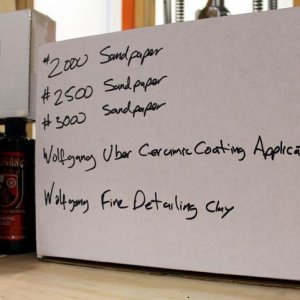 #2000 Sandpaper
#2500 Sandpaper
#3000 Sandpaper
Wolfgang Uber Ceramic Coating Applica
Wolfgang Fine Detailing Clay